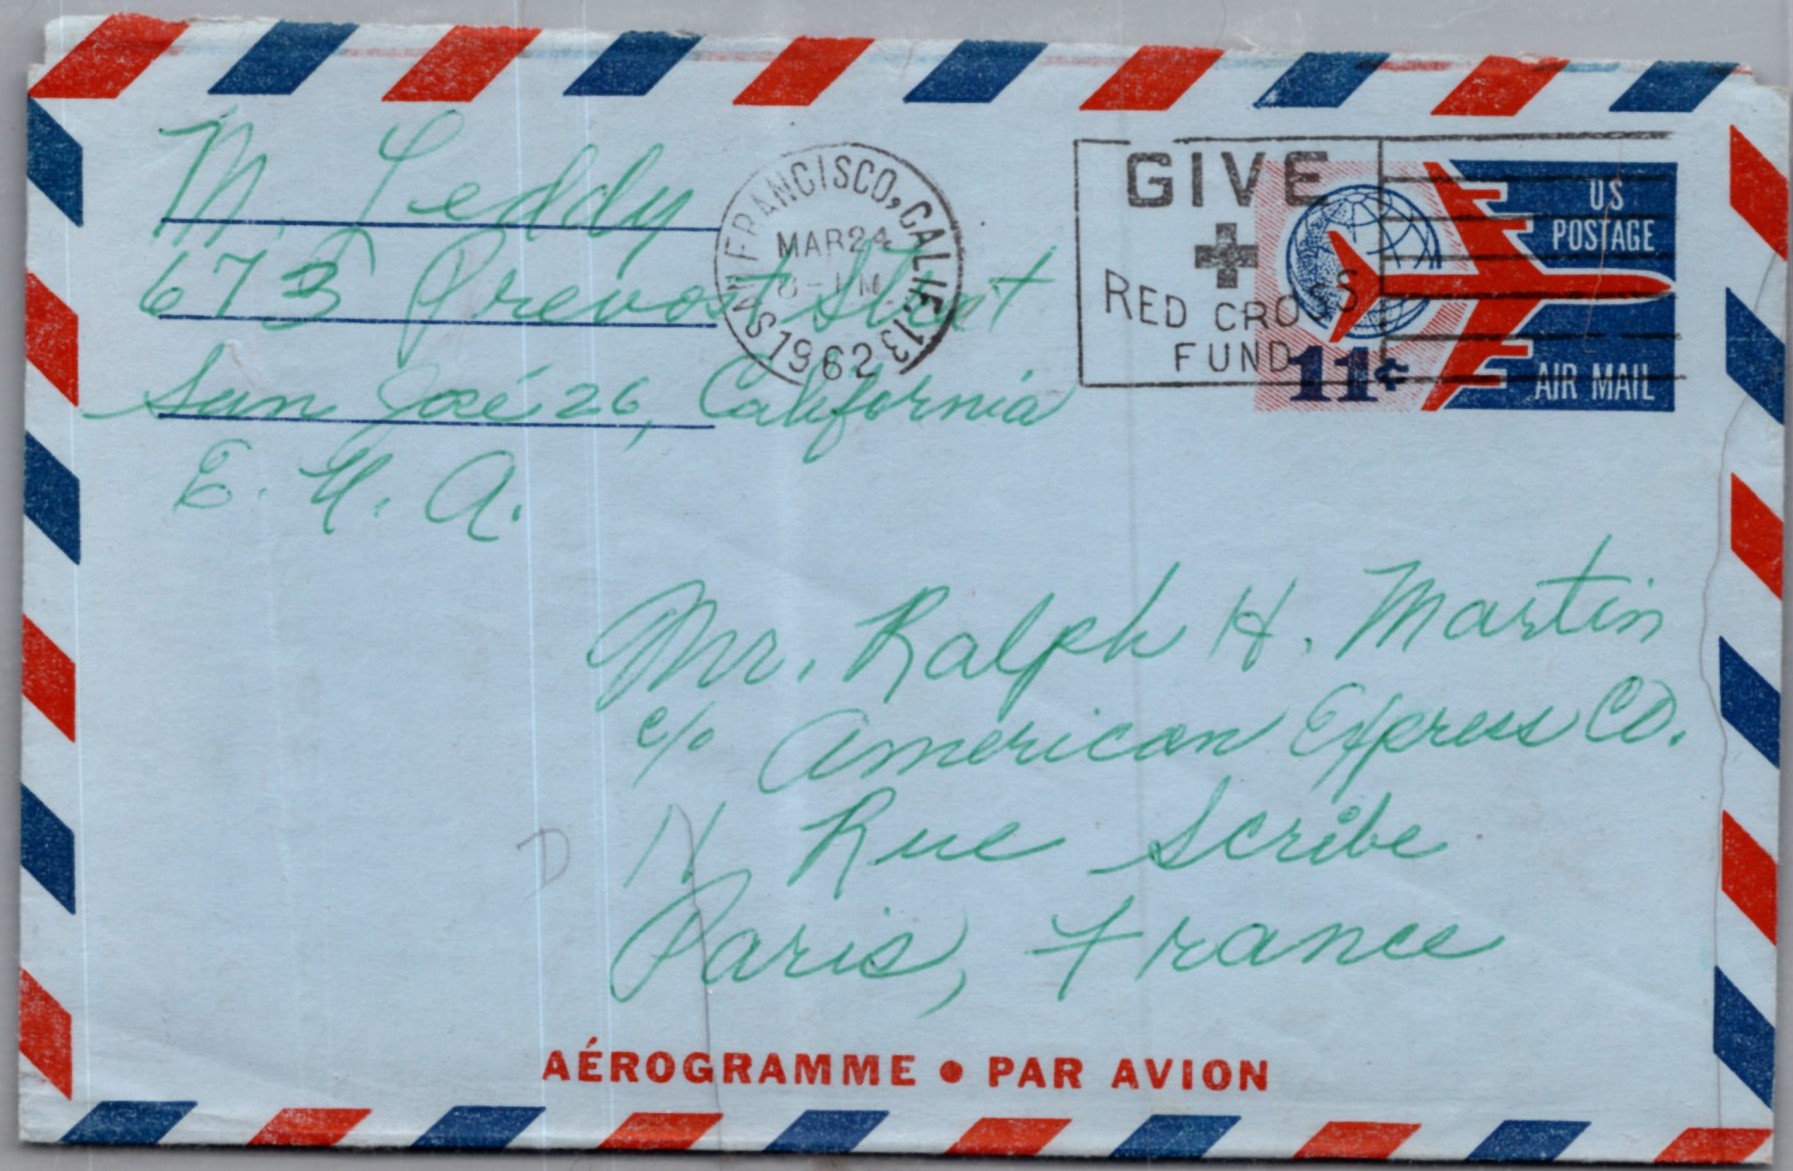 M. Leddy
673 Prevost Street
San José 26, California
E. U. A.
SAN FRANCISCO, CALIF. 13
MAR 24
PM
1962
GIVE
RED CROSS
FUND
US
POSTAGE
11¢
AIR MAIL
Mr. Ralph H. Martin
c/o American Express Co.
11 Rue Scribe
Paris, France
D
AÉROGRAMME • PAR AVION